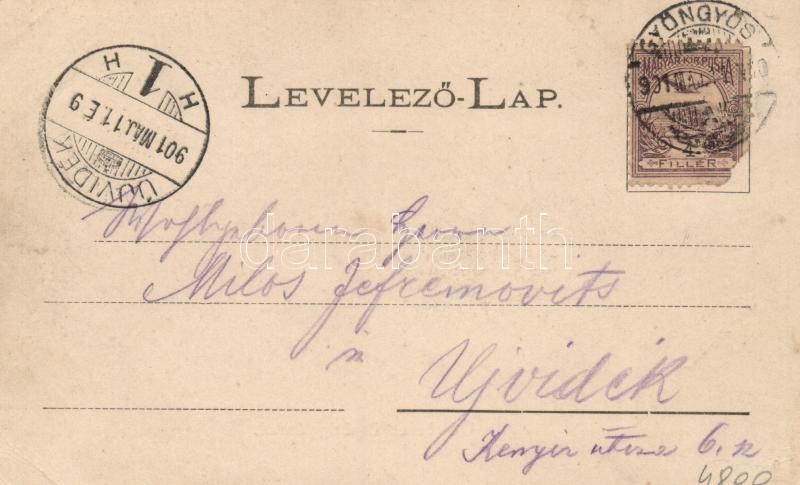 GYÖNGYÖS
901 MÁJ
MAGYAR KIR. POSTA
FILLÉR
H H
1
901 MÁJ. 11. É 9
ÚJVIDÉK
LEVELEZŐ-LAP.
darabanth
Milos Jefremovits
in
Ujvidék
Kenyér utcza 6. sz
4800